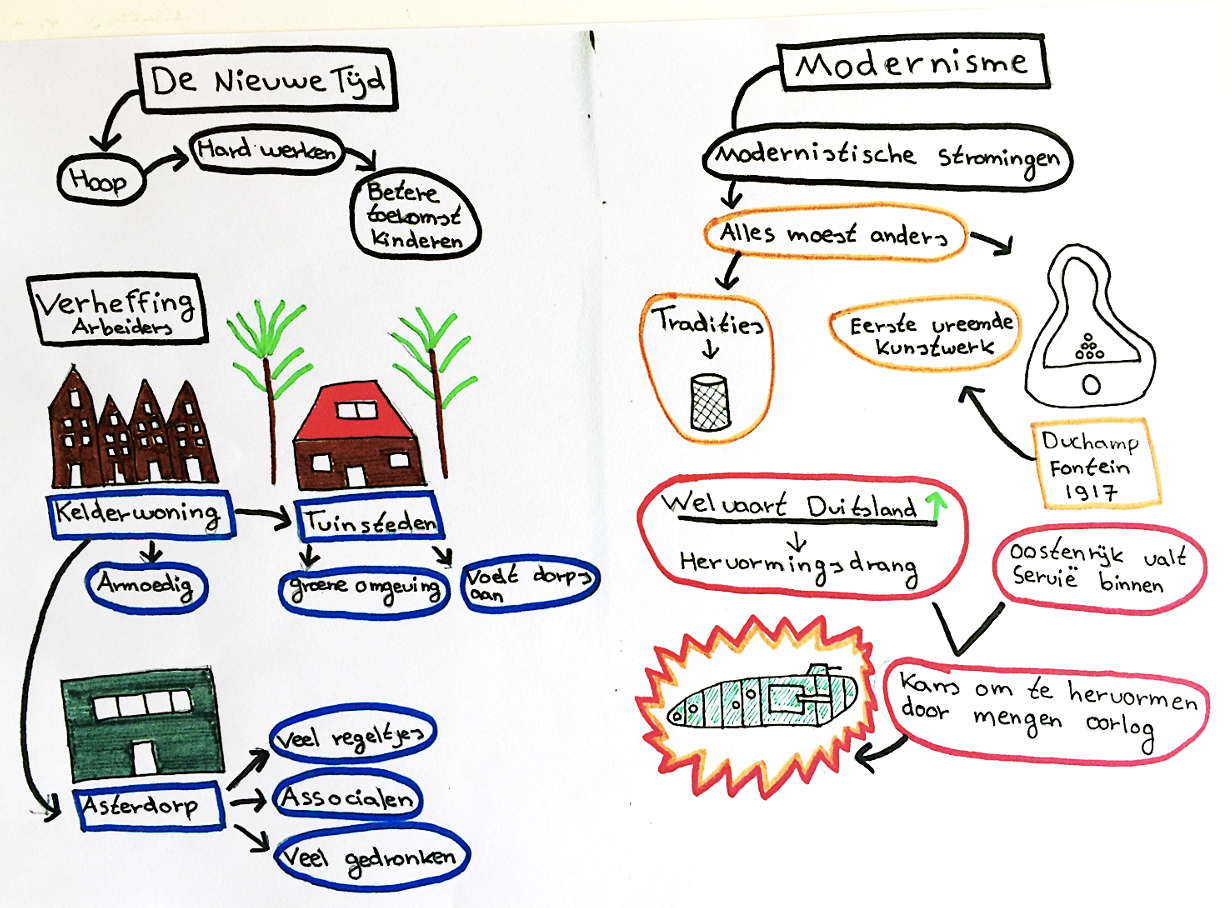 De Nieuwe Tijd
Hoop
Hard werken
Betere
toekomst
Kinderen
Verheffing
Arbeiders
Kelderwoning
Tuinsteden
Armoedig
groene omgeving
Voelt dorps
aan
Asterdorp
Veel regeltjes
Associalen
Veel gedronken
Modernisme
Modernistische stromingen
Alles moest anders
Tradities
Eerste vreemde
Kunstwerk
Duchamp
Fontein
1917
Welvaart Duitsland
Hervormingsdrang
Oostenrijk valt
Servië binnen
Kans om te hervormen
door mengen oorlog